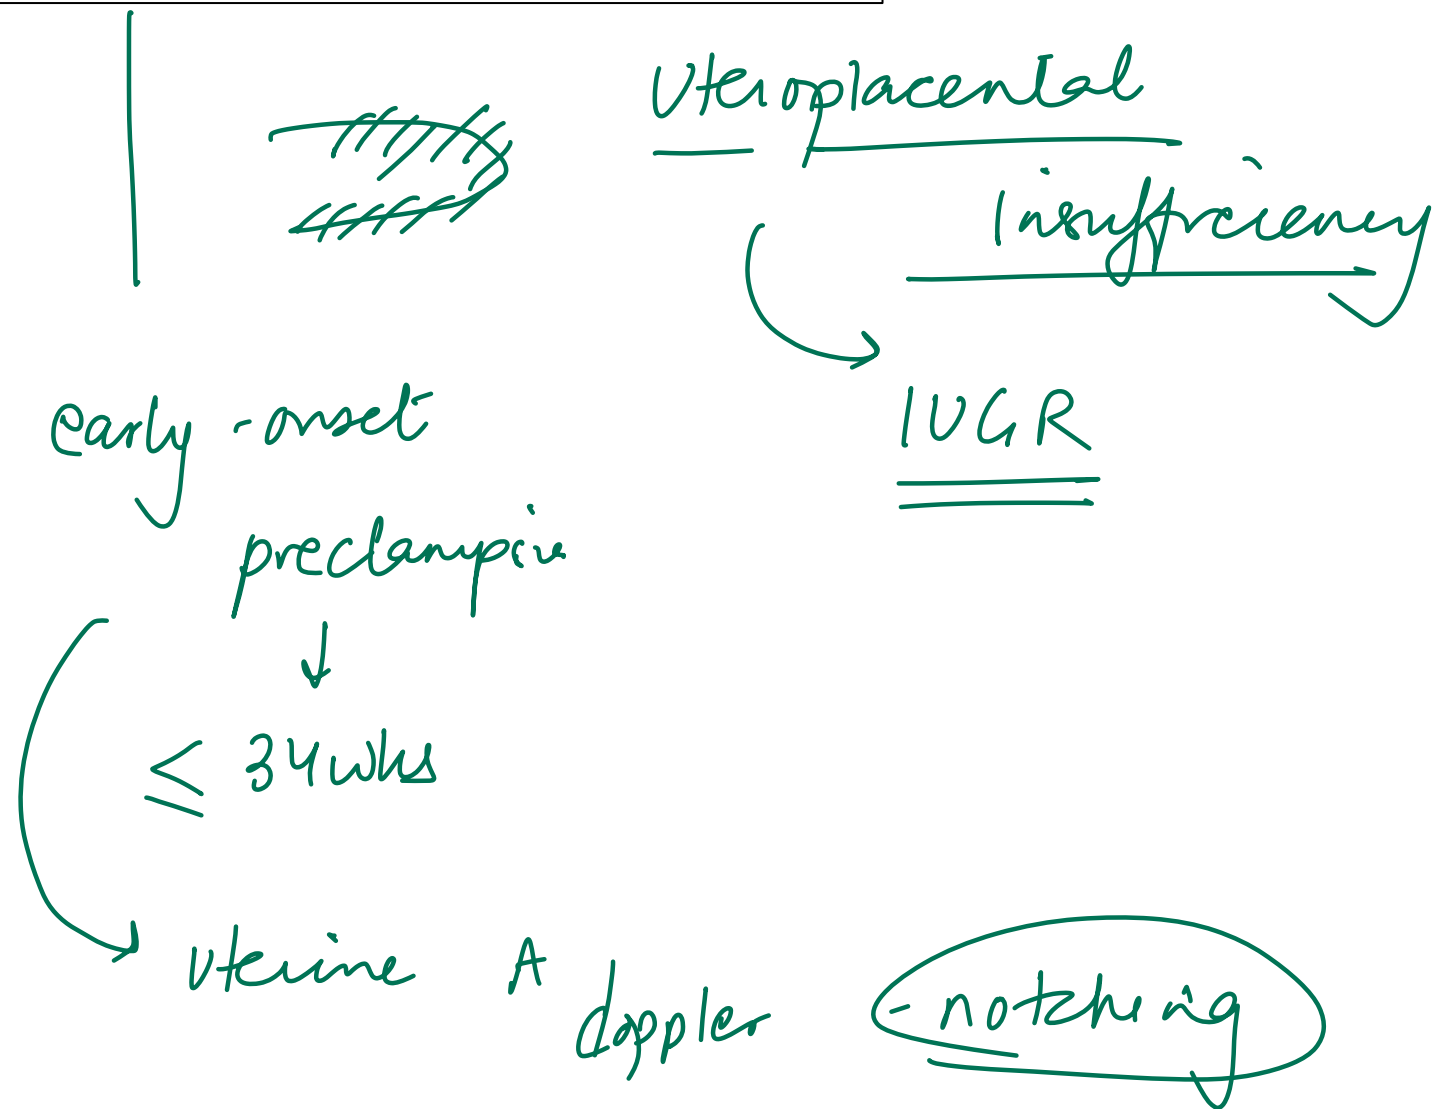 Uteroplacental
Insufficiency
IUGR
early-onset
preclampsia
≤ 34wks
Uterine A doppler - notching